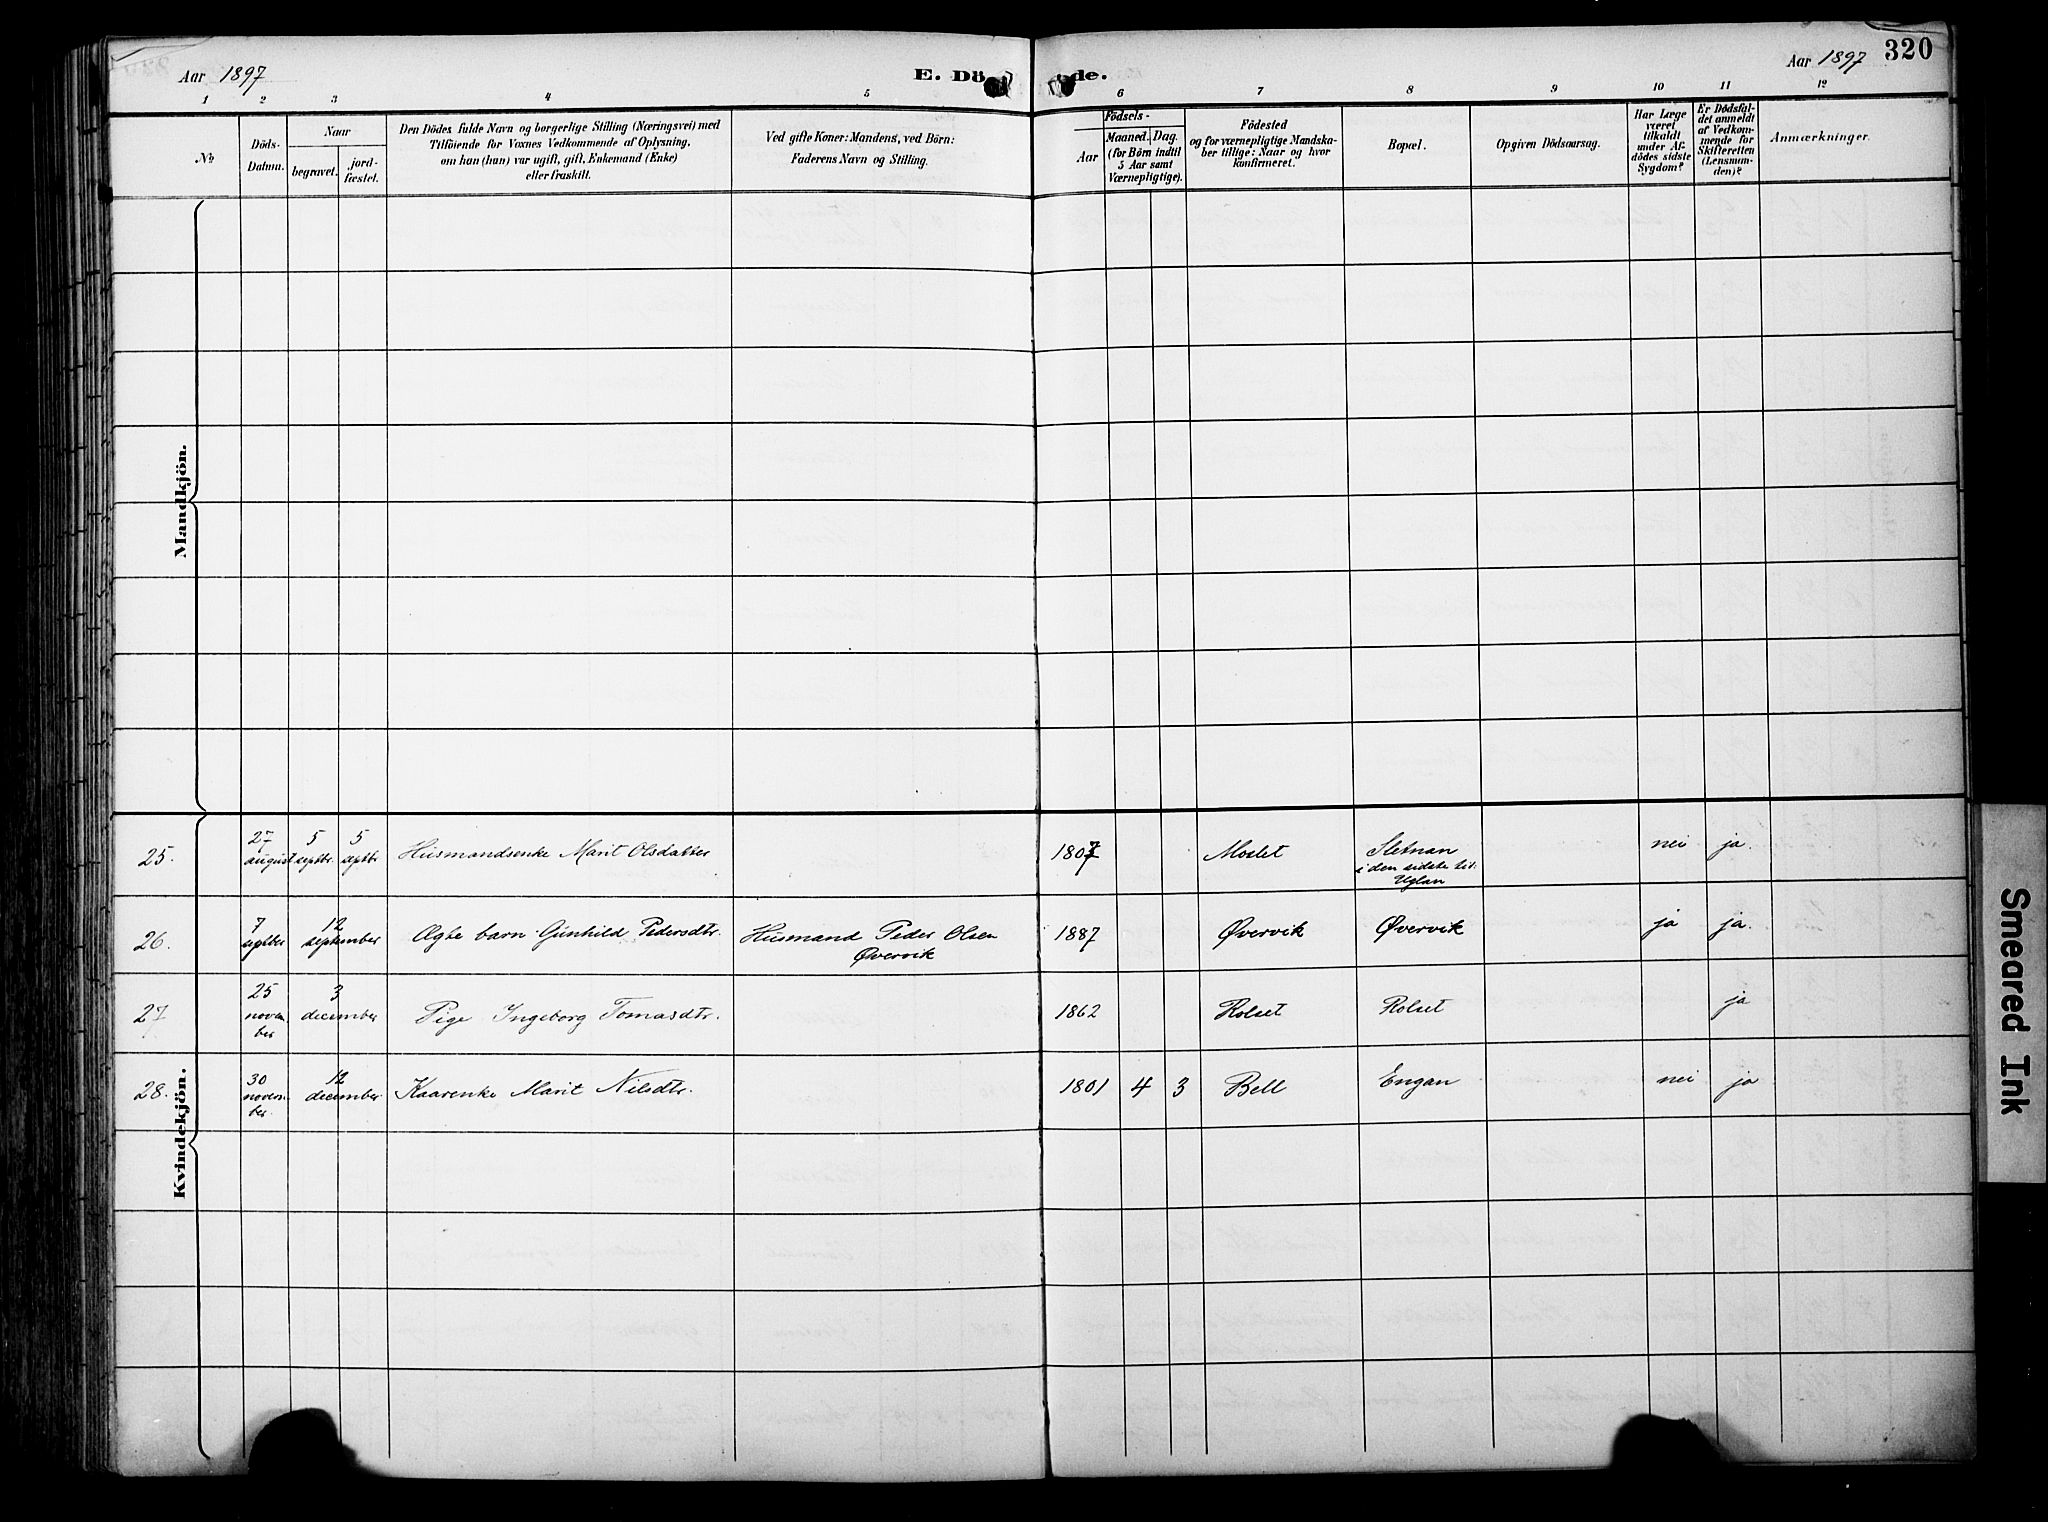 Aar 1897
E. Dö de.
Aar 1897
320
1 2 3 4 5 6 7 8 9 10 11 12
No
Döds-
Datum.
Naar
begravet.
jord-
fæstet.
Den Dödes fulde Navn og borgerlige Stilling (Næringsvei) med
Tilföiende for Voxnes Vedkommende af Oplysning,
om han (hun) var ugift, gift, Enkemand (Enke)
eller fraskilt.
Ved gifte Koner: Mandens, ved Börn:
Faderens Navn og Stilling.
Födsels-
Aar
Maaned. Dag.
(for Börn indtil
5 Aar samt
Værnepligtige).
Födested
og for værnepligtige Mandska-
ber tillige: Naar og hvor
konfirmeret.
Bopæl.
Opgiven Dödsaarsag.
Har Læge
været
tilkaldt
under Af-
dödes sidste
Sygdom?
Er Dødsfal-
det anmeldt
af Vedkom-
mende for
Skifteretten
(Lensman-
den)?
Anmærkninger.
Mandkjön.
Kvindekjön.
25. 27 august 5 septbr. 5 septbr Husmandsenke Marit Olsdatter 1807 Moslet Sletnan nei ja.
i den sidste tid.
Uglan
26. 7 septbr 12 september Ægte barn Gunhild Pedersdtr. Husmand Peder Olsen 1887 Øvervik Øvervik ja ja.
Øvervik
27 25 novem-
ber 3 december Pige Ingeborg Tomasdtr. 1862 Rolset Rolset ja
28. 30 novem-
ber. 12 december Kaarenke Marit Nilsdtr. 1801 4 3 Bell Engan nei ja
Smeared Ink